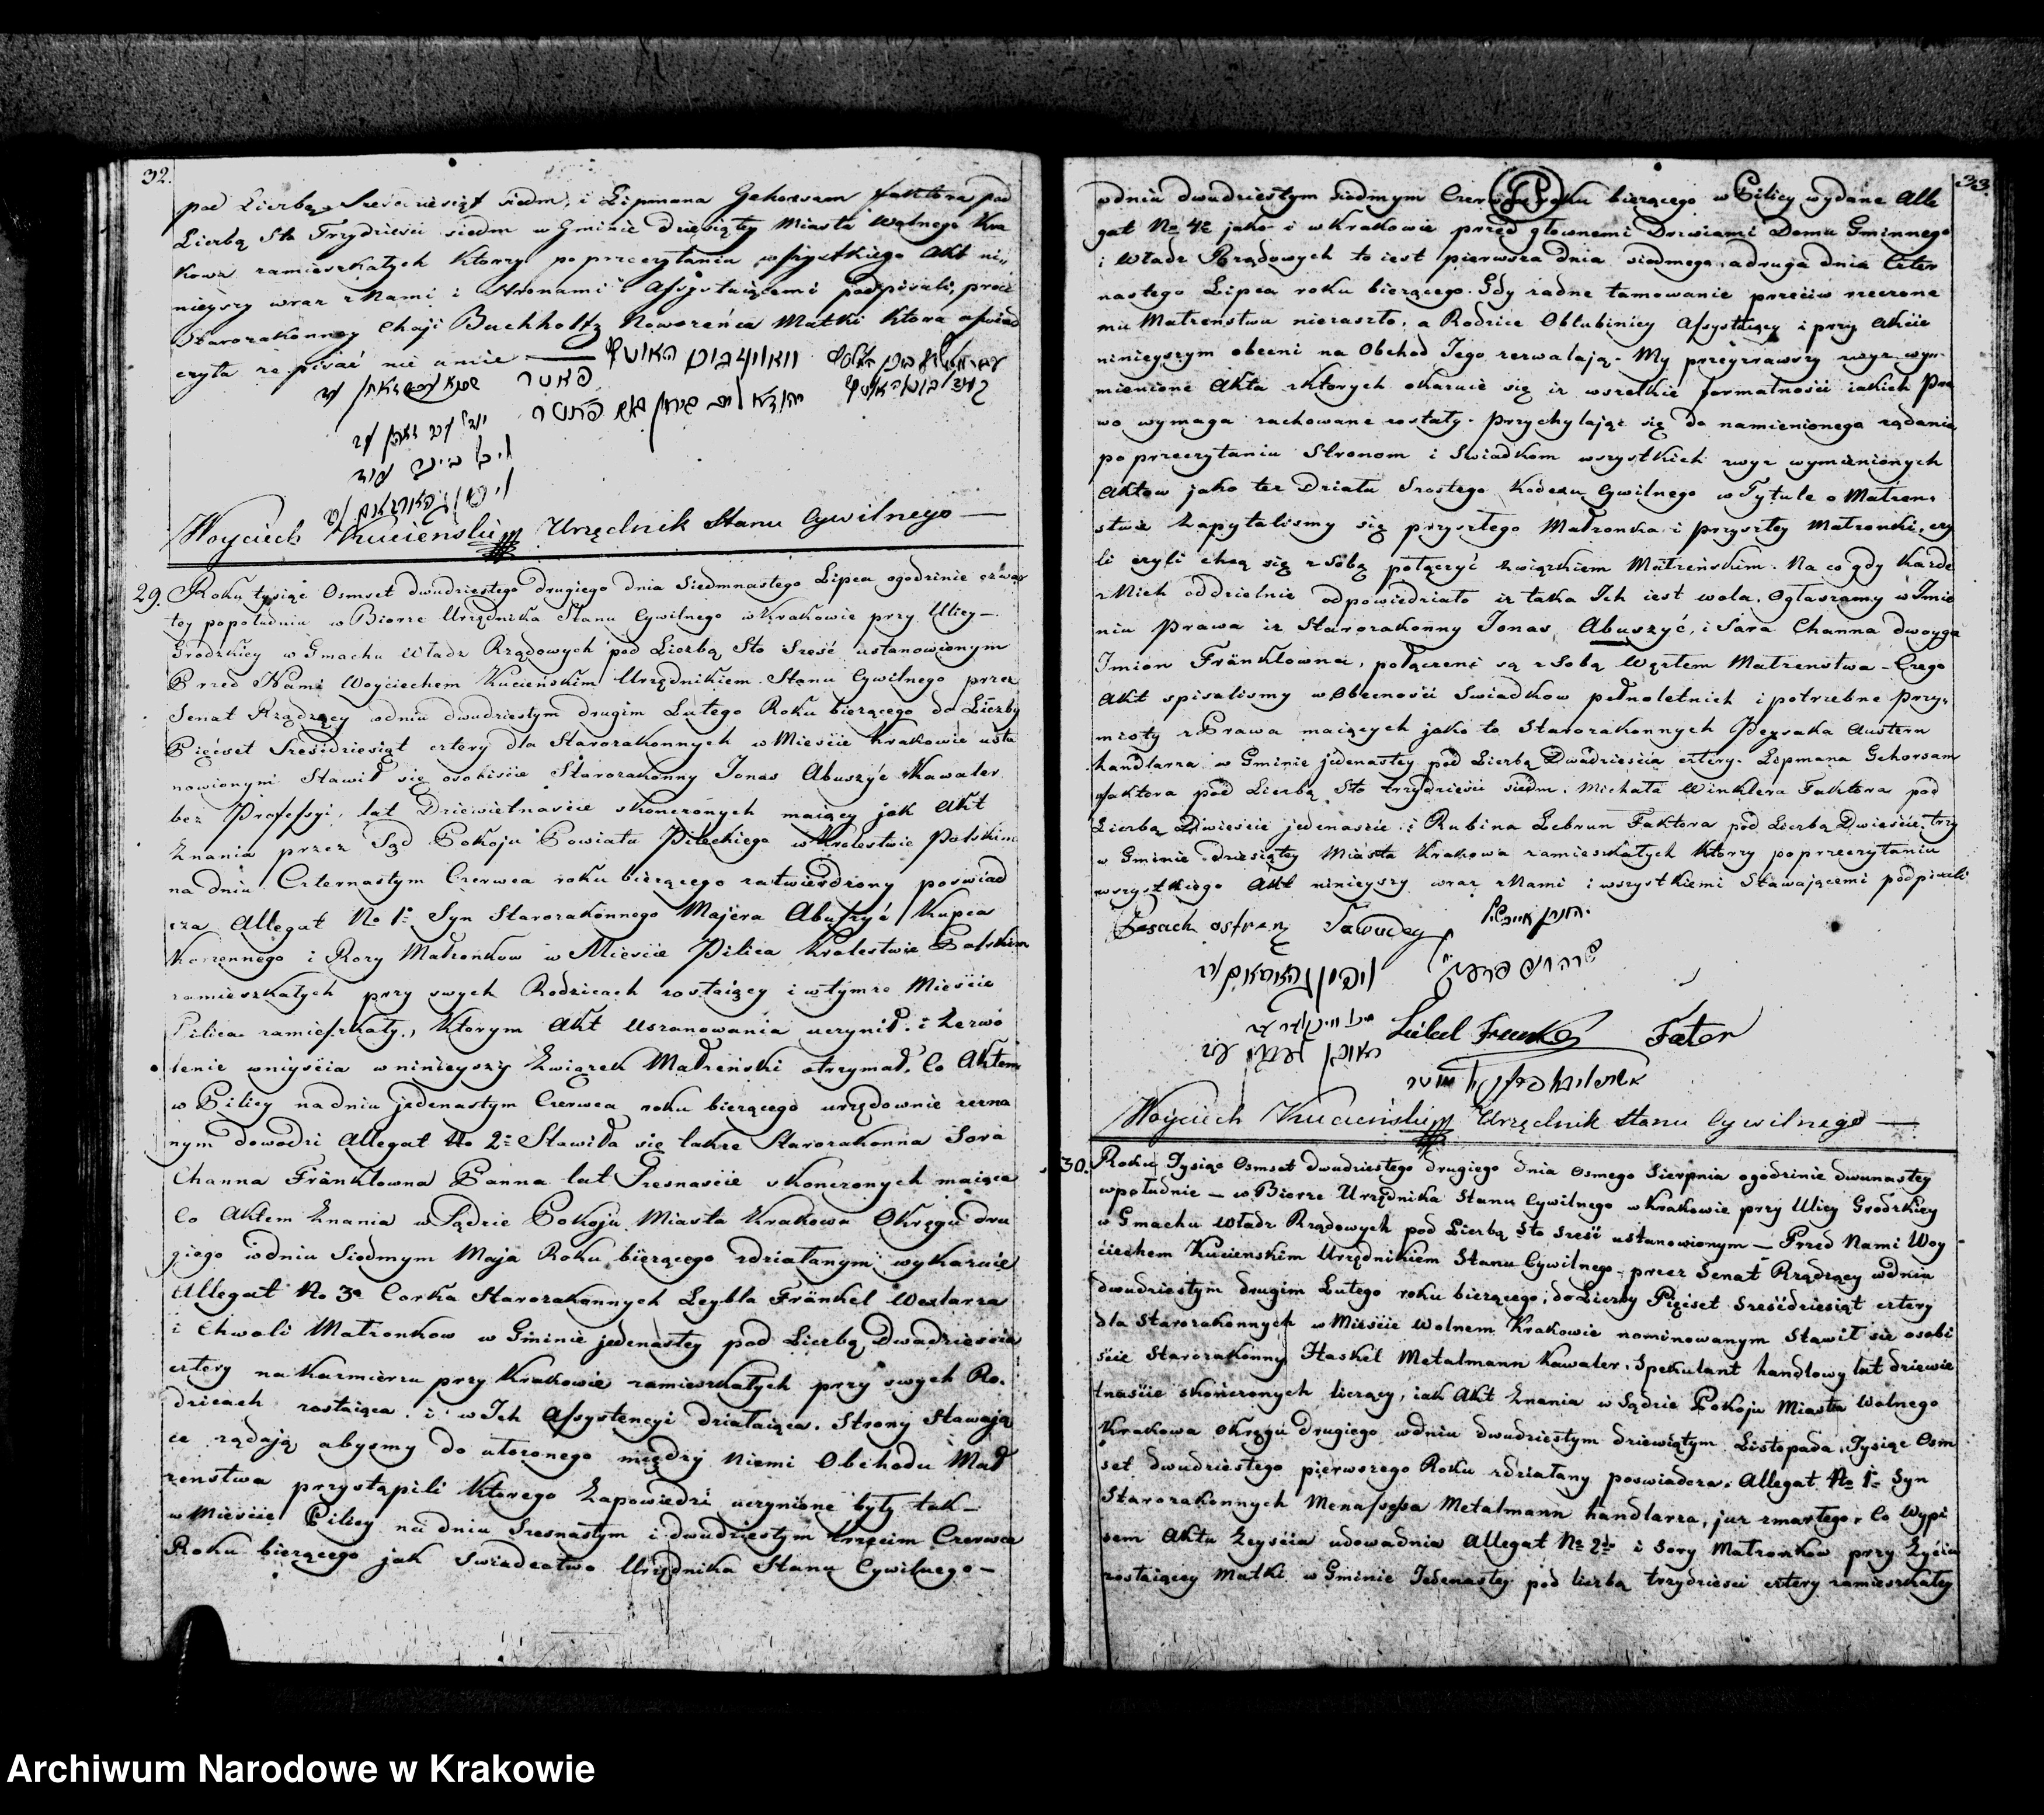 32.
pod Liczbą Sześćdziesiąt siedm, i Lipmana Gehorsam faktora pod
Liczbą Sto Trzydzieści siedm w Gminie dziesiątey Miasta Wolnego Kra
kowa zamieszkałych którzy po przeczytaniu wszystkiego Akt ni„
nieyszy wraz z Nami i Stronami i Assystuiącemi podpisali, prócz
Starozakonney Chaji Buchholtz Noworeńca Matki która oświad
czyła że pisać nie umie —
Woyciech Kucieński Urzędnik Stanu Cywilnego —
29. Roku tysiąc Osmset dwudziestego drugiego dnia Siedmnastego Lipca o godzinie czwar
tey popołudniu w Biorze Urzędnika Stanu Cywilnego w Krakowie przy Ulicy —
Grodzkiey w Gmachu Władz Rządowych pod Liczbą Sto Sześć ustanowionym
Przed Nami Woyciechem Kucieńskim Urzędnikiem Stanu Cywilnego przez
Senat Rządzący w dniu dwudziestym drugim Lutego Roku bieżącego do Liczby
Pięćset Sześćdziesiąt cztery dla Starozakonnych w Mieście Krakowie usta
nowionym Stawił się osobiście Starozakonny Jonas Abuszyć Kawaler
bez Professyi, lat Dziewiętnaście skończonych maiący jak Akt
Znania przez Sąd Pokoju Powiatu Pileckiego w Krolestwie Polskim
na dniu Czternastym Czerwca roku bieżącego zatwierdzony poświad
cza Allegat No 1o Syn Starozakonnego Majera Abuszyć Kupca
Korzennego i Rozy Małżonków w Mieście Pilica Krolestwie Polskim
zamieszkałych przy swych Rodzicach zostaiący i w tymże Mieście
Pilica zamieszkały, którym Akt Uszanowania uczynił i Zezwo
lenie wniyścia w ninieyszy Związek Małżeński otrzymał, Co Aktem
w Pilicy na dniu jedenastym Czerwca roku bieżącego urzędownie zezna
nym dowodzi Allegat No 2o Stawiła się także Starozakonna Sora
Channa Fränklowna Panna lat Szesnaście skonczonych maiąca
Co Aktem Znania w Sądzie Pokoju Miasta Krakowa Okręgu dru
giego w dniu Siodmym Maja Roku bieżącego zdziałanym wykazuie
Allegat No 3o Corka Starozakonnych Leybla Fränkel Wexlarza
i Chwoli Małżonkow w Gminie jedenastey pod Liczbą Dwadzieścia
cztery na Kazmierzu przy Krakowie zamieszkałych przy swych Ro„
dzicach zostaiąca i w Ich Assystencyi działaiąca. Strony Stawają
ce żądają abysmy do ułożonego między Niemi Obchodu Mał
żenstwa przystąpili Którego Zapowiedzi uczynione były tak—
w Mieście Pilicy na dniu Szesnastym i dwudziestym trzecim Czerwca
Roku bieżącego jak Swiadectwo Urzędnika Stanu Cywilnego —
33.
w dniu dwudziestym siodmym Czerwca roku bieżącego w Pilicy wydane Alle
gat No 4o jako i w Krakowie przed głownemi Drzwiami Domu Gminnego
i Władz Rządowych to iest pierwsza dnia siodmego a druga dnia Czter
nastego Lipca roku bieżącego. Gdy żadne tamowanie przeciw rzeczone
mu Małżenstwu niezaszło, a Rodzice Oblubinicy Assystuiący i przy Akcie
ninieyszym obecni na Obchod Jego zezwalają. My przeyrzawszy zwyz wy„
mienione Akta z ktorych okazuie się iż wszelkie formalności iakich Pra
wo wymaga zachowane zostały. Przychylając się do namienionego żądania
po przeczytaniu Stronom i Swiadkom wszystkich zwyz wymienionych
Aktow jako też Działu Szostego Kodexu Cywilnego w Tytule o Małżen„
stwie Zapytalismy się przyszłego Małżonka i przyszłey Małżonki, czy
li czyli chcą się z Sobą połączyć Związkiem Małżeńskim. Na co gdy Każde
z Nich oddzielnie odpowiedziało iż taka Ich iest wola. Ogłaszamy w Imie
niu Prawa iż Starozakonny Jonas Abuszyć, i Sara Channa dwoyga
Imion Fränklowna, połączeni są z Sobą Węzłem Małżenstwa. Czego
Akt spisalismy w Obecności Swiadkow pełnoletnich i potrzebne Przy„
mioty z Prawa maiących jako to Starozakonnych Peysaka Austern
handlarza w Gminie jedenastey pod Liczbą Dwadzieścia cztery. Lipmana Gehorsam
faktora pod Liczbą Sto trzydzieści siedm. Michała Winklera Faktora pod
Liczbą Dwieście jedenaście i Rubina Lebrun Faktora pod Liczbą Dwieście trzy
w Gminie dziesiątey Miasta Krakowa zamieszkałych Którzy po przeczytaniu
wszystkiego Akt ninieyszy wraz z Nami i wszystkiemi Stawającemi podpisali
Woyciech Kucieński Urzędnik Stanu Cywilnego —
30. Roku Tysiąc Osmset Dwudziestego drugiego dnia Osmego Sierpnia o godzinie dwunastey
w południe — w Biorze Urzędnika Stanu Cywilnego w Krakowie przy Ulicy Grodzkiey
w Gmachu Władz Rządowych pod Liczbą Sto Sześć ustanowionym — Przed Nami Woy
ciechem Kucienskim Urzędnikiem Stanu Cywilnego przez Senat Rządzący w dniu
dwudziestym drugim Lutego roku bieżącego, do Liczby Pięćset Sześćdziesiąt cztery
dla Starozakonnych w Mieście Wolnem Krakowie nominowanym Stawił się osobi
ście Starozakonny Haskel Metalmann Kawaler, Spekulant handlowy lat dziewię
tnaście skończonych liczący, iak Akt Znania w Sądzie Pokoju Miasta Wolnego
Krakowa Okręgu drugiego w dniu dwudziestym dziewiątym Listopada, Tysiąc Osm
set dwudziestego pierwszego Roku zdziałany poswiadcza, Allegat No 1o Syn
Starozakonnych Menassesa Metalmann handlarza, już zmarłego, Co Wypi
sem Aktu Zeyścia udowadnia Allegat No 2do i Sory Małżonkow przy Życiu
zostaiącey Matki w Gminie Jedenastey pod liczbą trzydzieści cztery zamieszkałey
Archiwum Narodowe w Krakowie